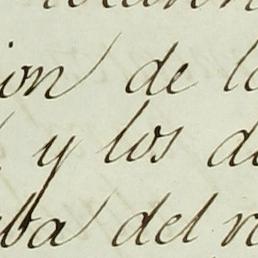 ion de lo
y los de
ba del re